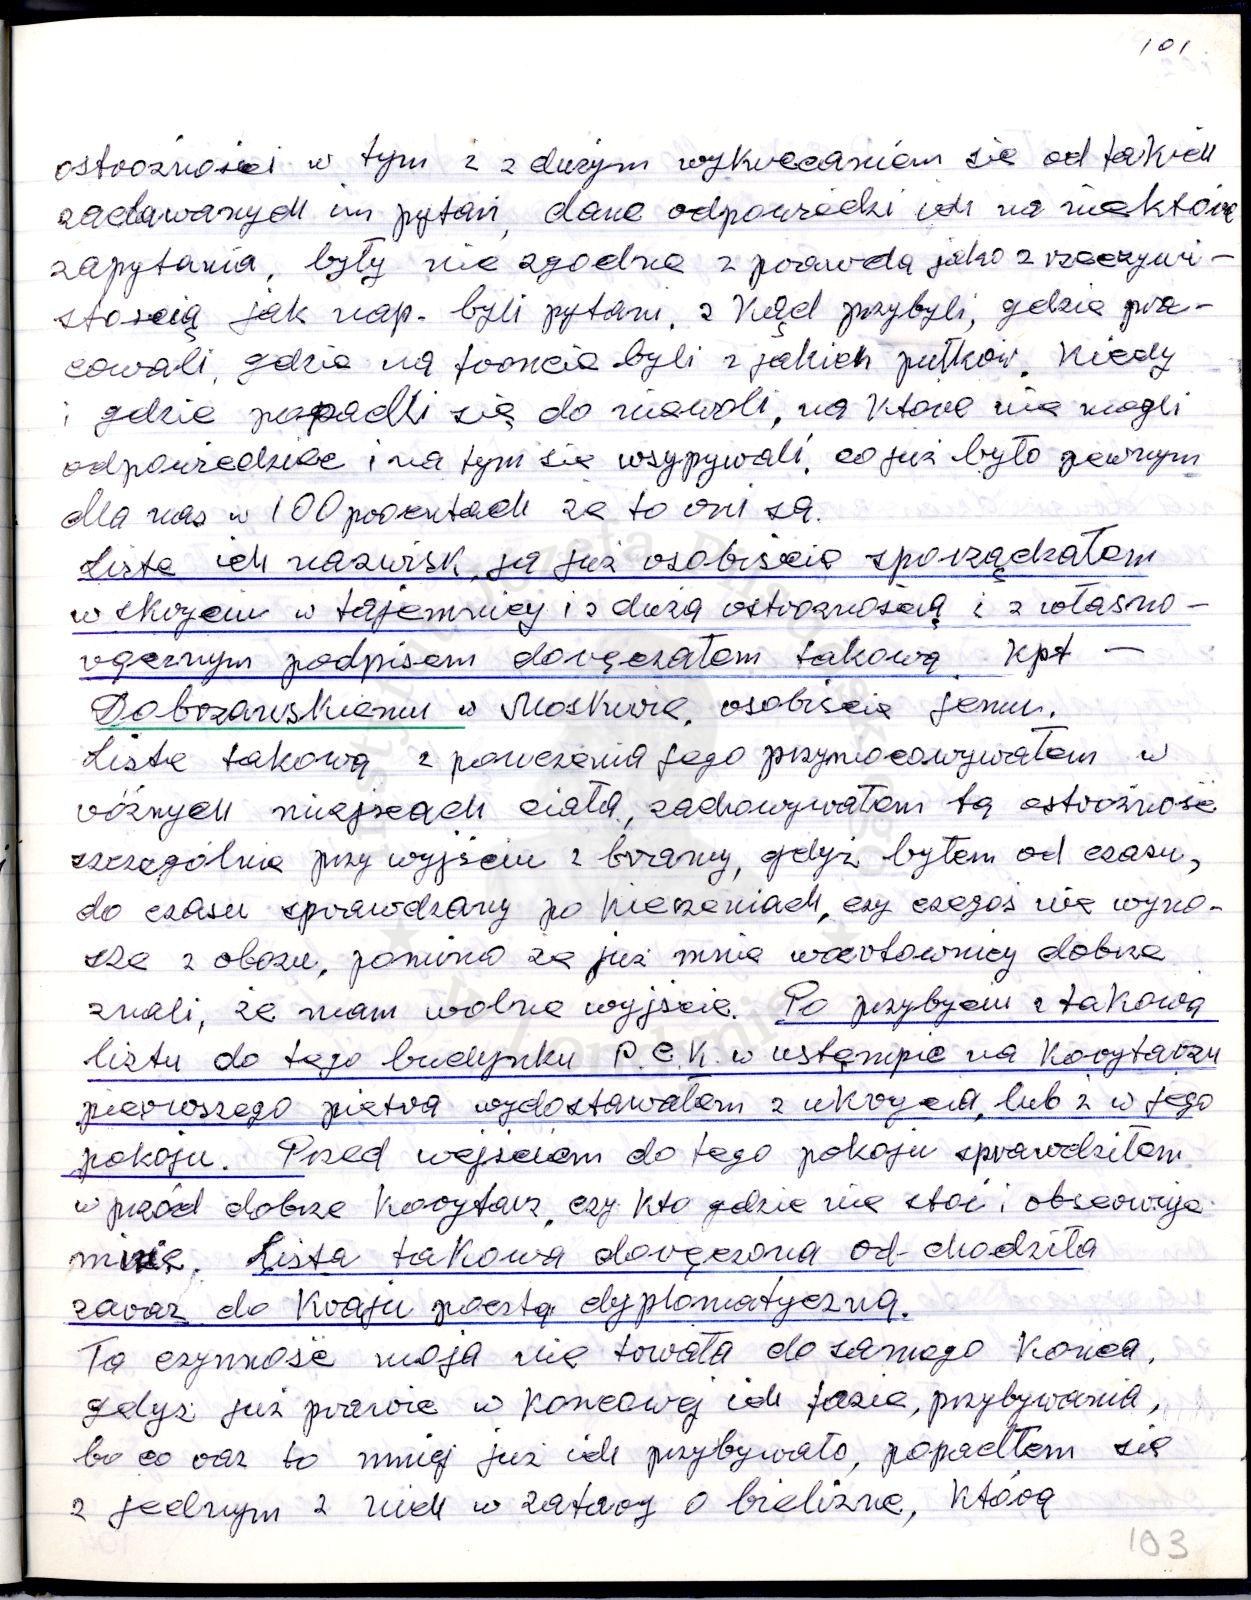 101
ostrożności w tym i z dużym wykręcaniem się od takich
zadawanych im pytań, dane odpowiedzi ich na niektóre
zapytania, były nie zgodne z prawdą jako z rzeczywi-
stością jak nap. byli pytani, z kąd przybyli, gdzie pra-
cowali, gdzie na froncie byli z jakich pułków. Kiedy
i gdzie popadli się do niewoli, na które nie mogli
odpowiedzieć i na tym się wsypywali, co już było pewnym
dla nas w 100 procentach że to oni są.
Listę ich nazwisk, ja już osobiście sporządzałem
w skryciu w tajemnicy i z dużą ostrożnością i z własno-
ręcznym podpisem doręczałem takową kpt –
Dobrzańskiemu w Moskwie, osobiście jemu.
Listę takową z polecenia jego przymocowywałem w
różnych miejscach ciała, zachowywałem tą ostrożność
szczególnie przy wyjściu z bramy, gdyż byłem od czasu,
do czasu sprawdzany po kieszeniach, czy czegoś nie wyno-
szę z obozu, pomimo że już mnie wartownicy dobrze
znali, że mam wolne wyjście. Po przybyciu z takową
listu do tego budynku P.C.K. w ustępie na korytarzu
pierwszego piętra wydostawałem z ukrycia, lub ż w jego
pokoju. Przed wejściem do tego pokoju sprawdziłem
w przód dobrze korytarz, czy kto gdzie nie stoi i obserwuje
mnie. Lista takowa doręczona od-chodziła
zaraz do Kraju pocztą dyplomatyczną.
Ta czynność moja nie trwała do samego końca,
gdyż już prawie w końcowej ich fazie, przybywania,
bo co raz to mniej już ich przybywało, popadłem się
z jednym z nich w zatarg o bieliznę, którą
103